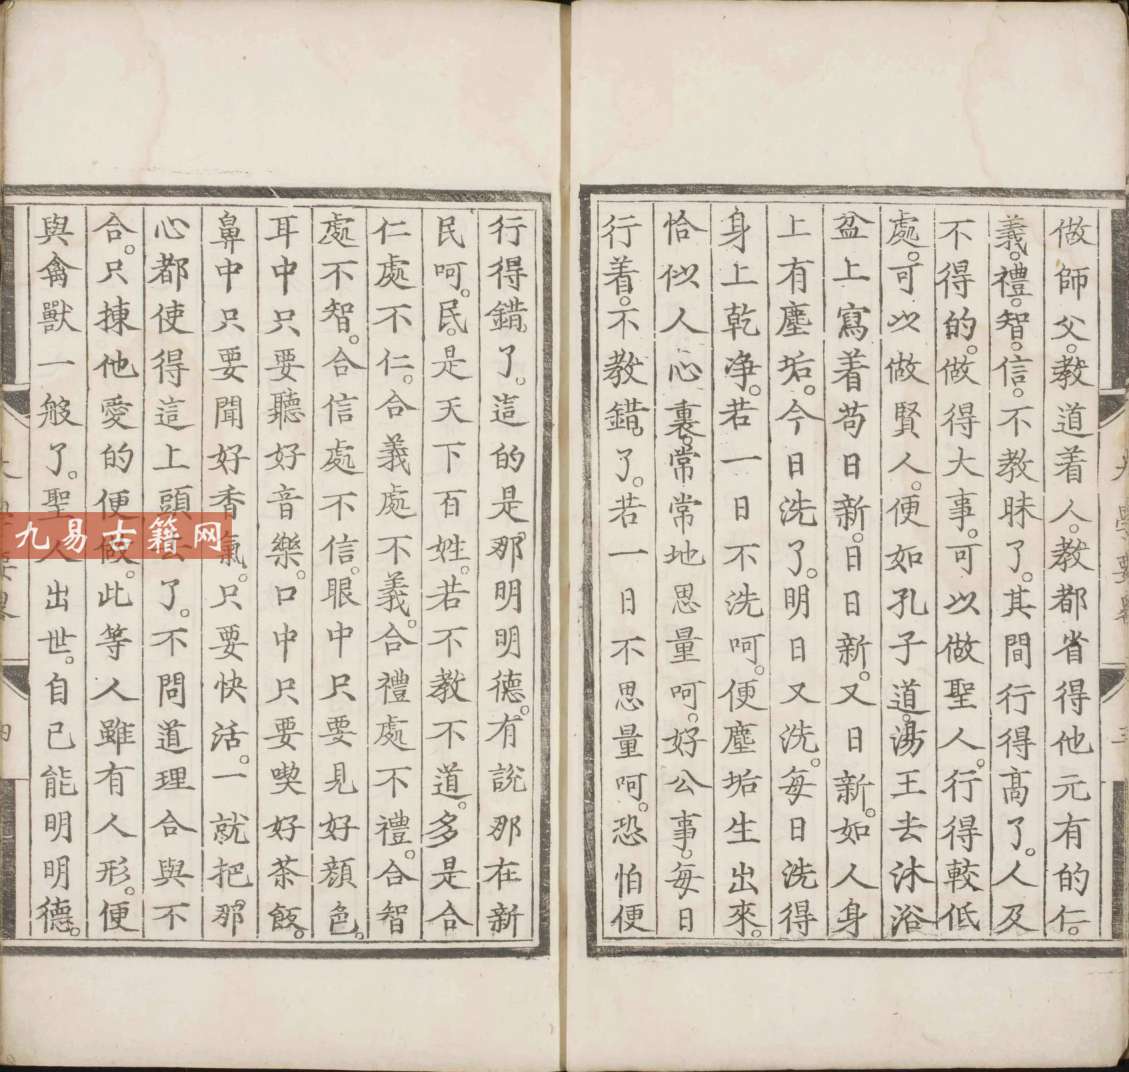 做師父。教道着人。教都省得他元有的仁。
義。禮。智。信。不教昧了。其間行得高了。人及
不得的。做得大事。可以做聖人。行得較低
處。可以做賢人。便如孔子道。湯王去沐浴
盆上寫着苟日新。日日新。又日新。如人身
上有塵垢。今日洗了。明日又洗。每日洗得
身上乾净。若一日不洗呵。便塵垢生出來。
恰似人心裏。常常地思量呵。好公事。每日
行着。不教錯了。若一日不思量呵。恐怕便
行得錯了。這的是那明明德。有說那在新
民呵。民。是天下百姓。若不教不道。多是合
仁處不仁。合義處不義。合禮處不禮。合智
處不智。合信處不信。眼中只要見好顔色。
耳中只要聽好音樂。口中只要喫好茶飯。
鼻中只要聞好香氣。只要快活。一就把那
心都使得這上頭去了。不問道理合與不
合。只揀他愛的便做。此等人雖有人形。便
與禽獸一般了。聖人出世。自已能明明德。
九易古籍网